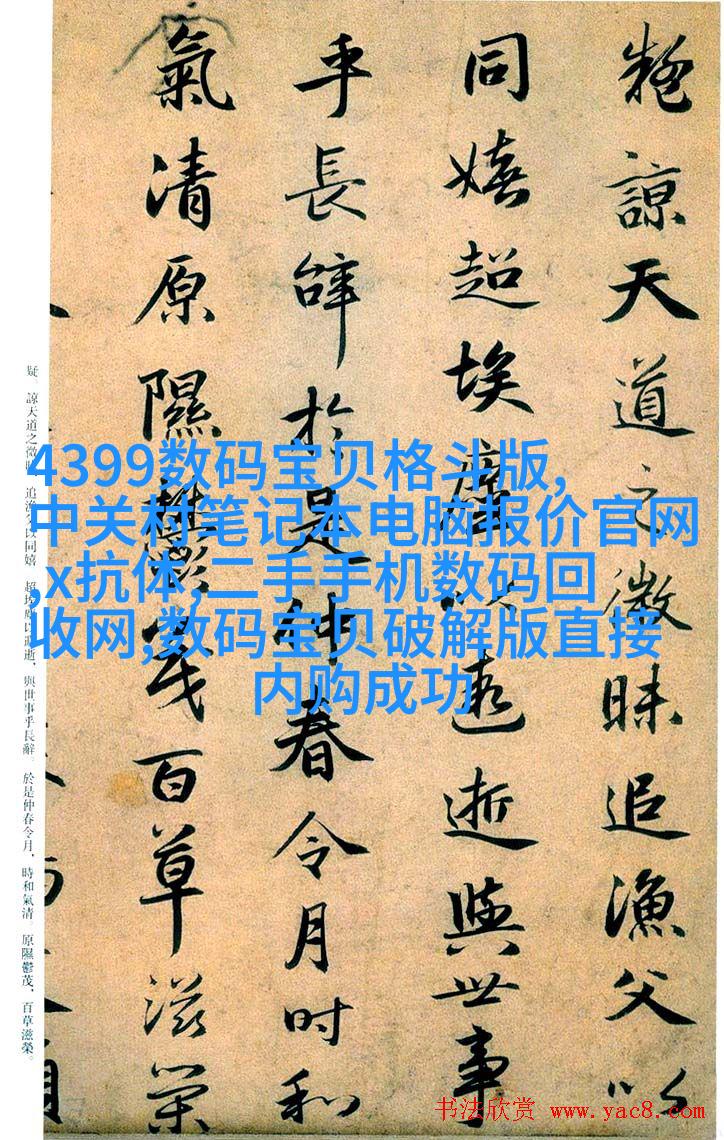 疑諒天道之微昧追漁父以
同嬉超埃塵以遐逝與世事
乎長辭於是仲春令月時和
氣清原隰鬱茂百草滋榮
4399数码宝贝格斗版,
中关村笔记本电脑报价官网
,x抗体,二手手机数码回
收网,数码宝贝破解版直接
内购成功
疑。諒天道之微昧,追漁父以同嬉。超埃塵以遐逝,與世事乎長辭。於是仲春令月,時和氣清。原隰鬱茂,百草滋榮。
书法欣赏 www.yac8.com